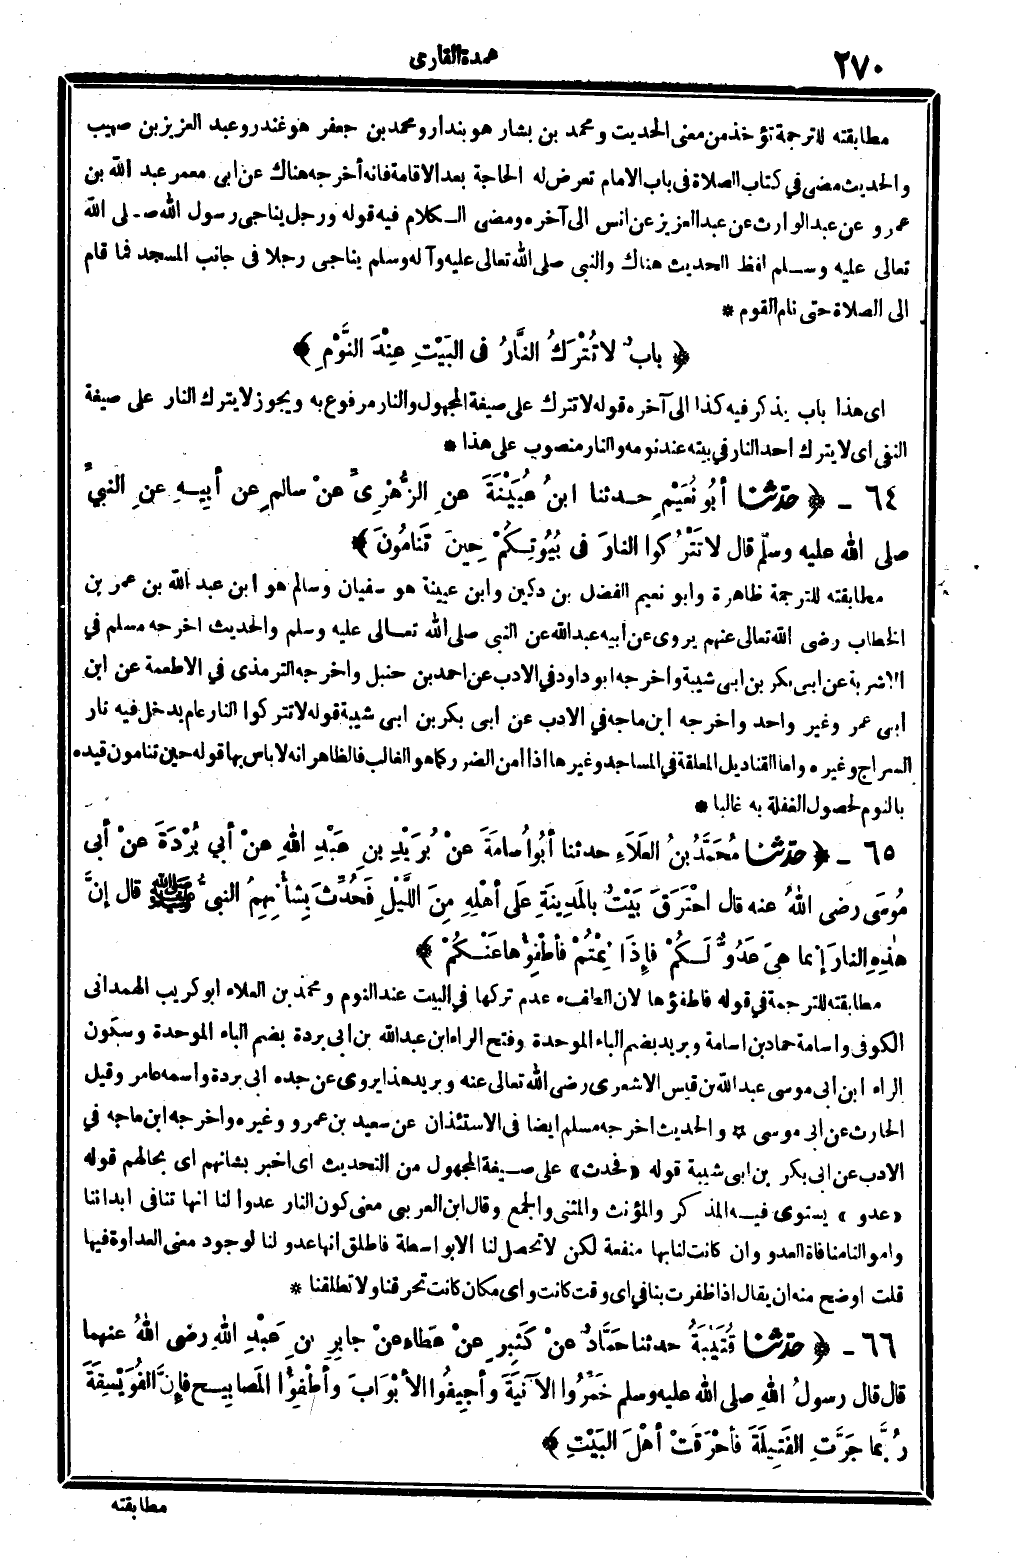 ٢٧٠
عمدة القارى
مطابقته للترجمة تؤخذ من معنى الحديث ومحمد بن بشار هو بندار ومحمد بن جعفر هو غندر وعبد العزيز بن صهيب
والحديث مضى في كتاب الصلاة فى باب الامام تعرض له الحاجة بعد الاقامة فانه أخرجه هناك عن ابى معمر عبد الله بن
عمرو عن عبد الوارث عن عبد العزيز عن انس الى آخره ومضى الكلام فيه قوله ورجل يناجى رسول الله صلى الله
تعالى عليه وسلم لفظ الحديث هناك والنبي صلى الله تعالى عليه وآله وسلم يناجى رجلا فى جانب المسجد فما قام
الى الصلاة حتى نام القوم *
﴿ بابٌ لا تُتْرَكُ النَّارُ فى البَيْتِ عِنْدَ النَّوْمِ ﴾
اى هذا باب يذكر فيه كذا الى آخره قوله لا تترك على صيغة المجهول والنار مرفوع به ويجوز لا يترك النار على صيغة
النفى اى لا يترك احد النار في بيته عند نومه والنار منصوب على هذا *
٦٤ - ﴿ حدّثنا أبُو نُعَيْمٍ حدثنا ابنُ عُيَيْنَةَ عنِ الزُّهْرِىِّ عنْ سالمٍ عن أبِيهِ عنِ النبيِّ
صلى الله عليه وسلّم قال لا تَتْرُكوا النارَ فى بُيُوتِكُمْ حِينَ تَنامُونَ ﴾
مطابقته للترجمة ظاهرة وأبو نعيم الفضل بن دكين وابن عيينة هو سفيان وسالم هو ابن عبد الله بن عمر بن
الخطاب رضى الله تعالى عنهم يروى عن أبيه عبد الله عن النبى صلى الله تعالى عليه وسلم والحديث اخرجه مسلم في
الاشربة عن ابى بكر بن ابى شيبة واخرجه ابو داود في الادب عن احمد بن حنبل واخرجه الترمذى في الاطعمة عن ابن
ابى عمر وغير واحد واخرجه ابن ماجه في الادب عن ابى بكر بن ابى شيبة قوله لا تتركوا النار عام يدخل فيه نار
السراج وغيره واما القناديل المعلقة في المساجد وغيرها اذا امن الضرر كما هو الغالب فالظاهر انه لا باس بها قوله حين تنامون قيده
بالنوم لحصول الغفلة به غالبا *
٦٥ - ﴿ حدّثنا مُحَمَّدُ بنُ العَلَاءِ حدثنا أبُو أُسامَةَ عنْ بُرَيْدِ بنِ عَبْدِ اللهِ عنْ أبي بُرْدَةَ عنْ أبى
مُوسَى رضى اللهُ عنه قال احْتَرَقَ بَيْتٌ بالمَدِينَةِ عَلَى أهْلِهِ مِنَ اللَّيْلِ فَحُدِّثَ بِشأنِهِمُ النبىُّ ﷺ قال إنَّ
هٰذِهِ النارَ إنما هىَ عَدُوٌّ لَكُمْ فإذَا نِمْتُمْ فأطْفِؤُها عَنْكُمْ ﴾
مطابقته للترجمة في قوله فاطفؤها لان الطفء عدم تركها في البيت عند النوم ومحمد بن العلاء ابو كريب الهمدانى
الكوفى واسامة حماد بن اسامة وبريد بضم الباء الموحدة وفتح الراء ابن عبد الله بن ابى بردة بضم الباء الموحدة وسكون
الراء ابن ابى موسى عبد الله بن قيس الاشعرى رضى الله تعالى عنه وبريد هذا يروى عن جده ابى بردة واسمه عامر وقيل
الحارث عن ابى موسى * والحديث اخرجه مسلم ايضا فى الاستئذان عن سعيد بن عمرو وغيره واخرجه ابن ماجه في
الادب عن ابى بكر بن ابى شيبة قوله «فحدث» على صيغة المجهول من التحديث اى اخبر بشانهم اى بحالهم قوله
«عدو» يستوى فيه المذكر والمؤنث والمثنى والجمع وقال ابن العربى معنى كون النار عدوا لنا انها تنافى ابداننا
واموالنا منافاة العدو وان كانت لنا بها منفعة لكن لا تحصل لنا الا بواسطة فاطلق انها عدو لنا لوجود معنى العداوة فيها
قلت اوضح منه ان يقال اذا ظفرت بنا في اى وقت كانت واى مكان كانت تحرقنا ولا تطلقنا *
٦٦ - ﴿ حدّثنا قُتَيْبَةُ حدثنا حَمَّادٌ عنْ كَثِيرٍ عنْ عَطاءٍ عنْ جابرِ بنِ عَبْدِ اللهِ رضى اللهُ عنهما
قال قال رسولُ اللهِ صلى الله عليه وسلم خَمِّرُوا الآنِيَةَ وأجِيفُوا الأبْوَابَ وأطْفِؤُا المَصابِيحَ فإنَّ الفُوَيْسِقَةَ
رُبَّما جَرَّتِ الفَتِيلَةَ فأحْرَقَتْ أهْلَ البَيْتِ ﴾
مطابقته